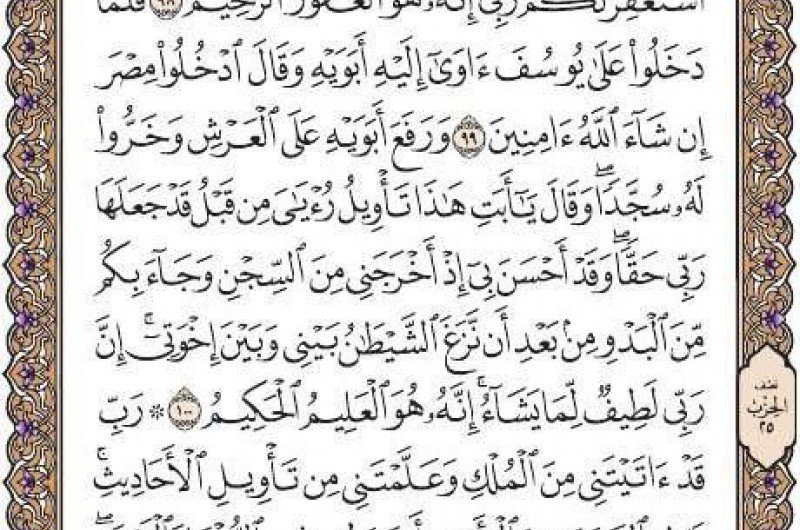 أَسْتَغْفِرُ لَكُمْ رَبِّيٓ إِنَّهُۥ هُوَ ٱلْغَفُورُ ٱلرَّحِيمُ ٩٨ فَلَمَّا
دَخَلُوا۟ عَلَىٰ يُوسُفَ ءَاوَىٰٓ إِلَيْهِ أَبَوَيْهِ وَقَالَ ٱدْخُلُوا۟ مِصْرَ
إِن شَآءَ ٱللَّهُ ءَامِنِينَ ٩٩ وَرَفَعَ أَبَوَيْهِ عَلَى ٱلْعَرْشِ وَخَرُّوا۟
لَهُۥ سُجَّدًا ۖ وَقَالَ يَٰٓأَبَتِ هَٰذَا تَأْوِيلُ رُءْيَٰىَ مِن قَبْلُ قَدْ جَعَلَهَا
رَبِّى حَقًّا ۖ وَقَدْ أَحْسَنَ بِىٓ إِذْ أَخْرَجَنِى مِنَ ٱلسِّجْنِ وَجَآءَ بِكُم
مِّنَ ٱلْبَدْوِ مِنۢ بَعْدِ أَن نَّزَغَ ٱلشَّيْطَٰنُ بَيْنِى وَبَيْنَ إِخْوَتِىٓ ۚ إِنَّ
رَبِّى لَطِيفٌ لِّمَا يَشَآءُ ۚ إِنَّهُۥ هُوَ ٱلْعَلِيمُ ٱلْحَكِيمُ ١٠٠ ۞ رَبِّ
قَدْ ءَاتَيْتَنِى مِنَ ٱلْمُلْكِ وَعَلَّمْتَنِى مِن تَأْوِيلِ ٱلْأَحَادِيثِ ۚ
نصف
الحزب
٢٥